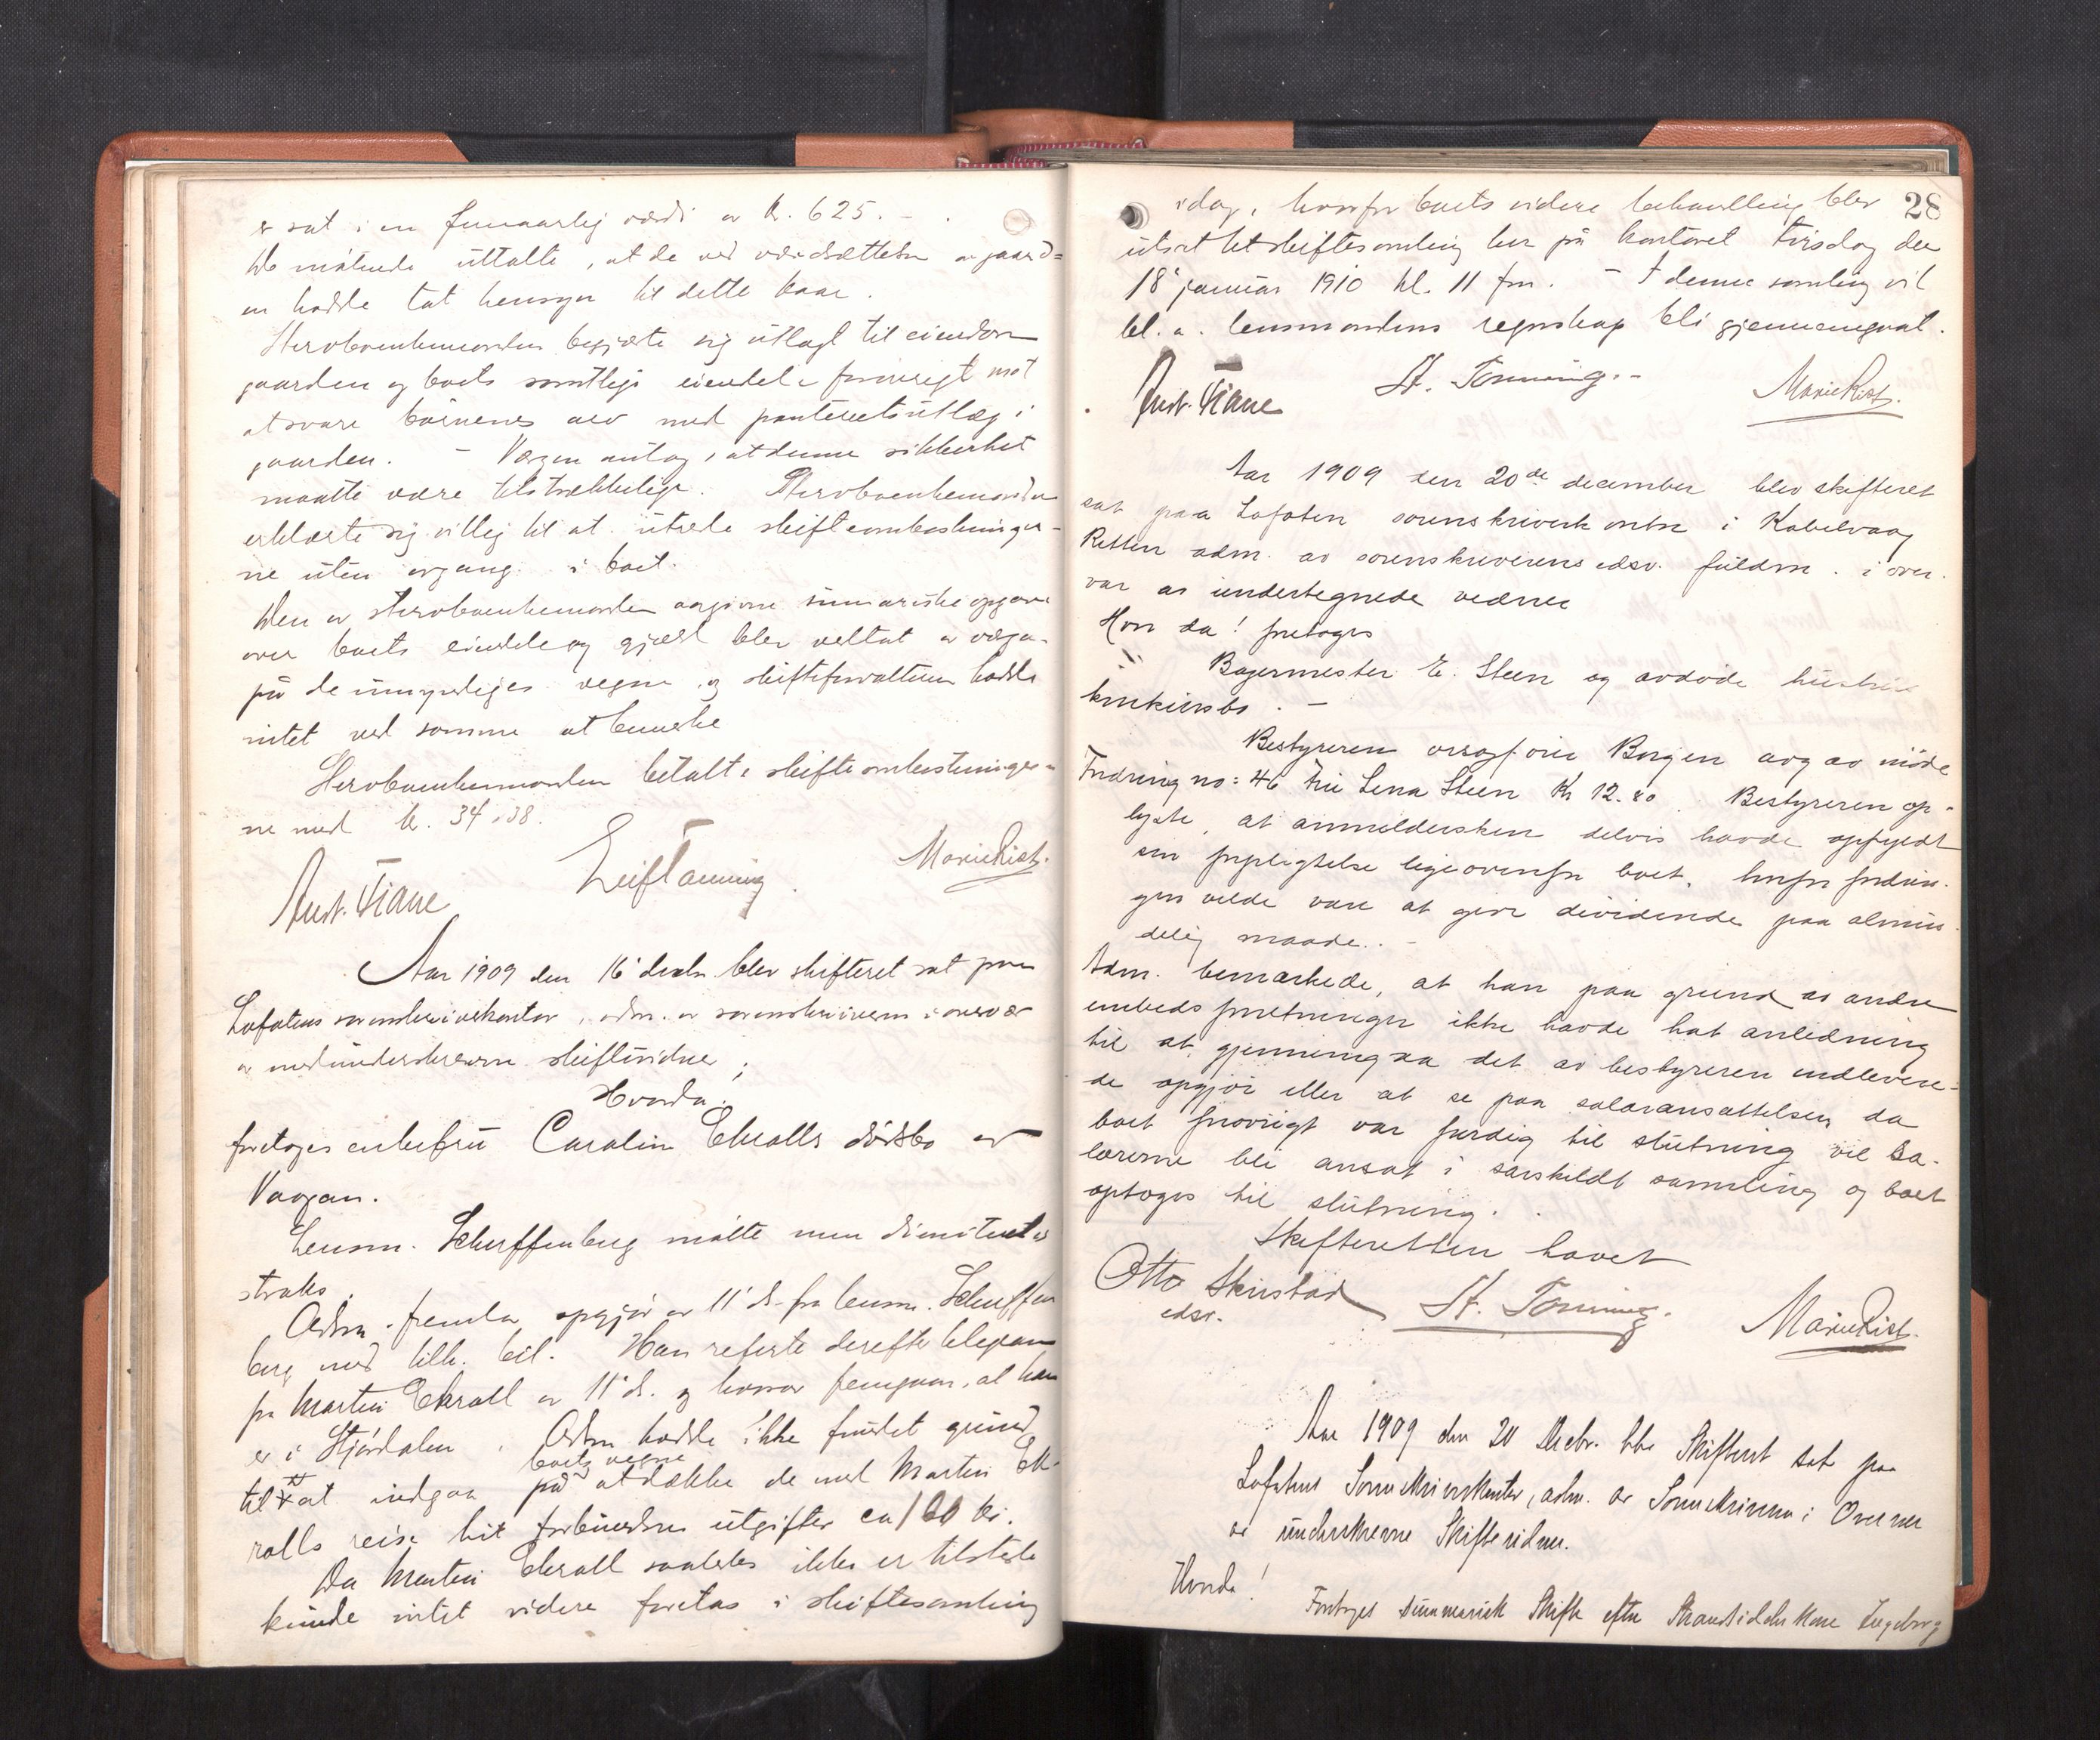 er sat i en femaarlig værdi av kr. 625. -
De mötende uttalte, at de ved værdsættelsen av gaard=
en hadde tat hensyn til dette kaar.
Stervboenkemanden begjærte sig utlagt til eiendom
gaarden og boets samtlige eiendele forøvrigt mot
at svare börnenes arv med panteretsutlæg i
gaarden. - Værgen antog, at denne sikkerhet
maatte være tilstrækkelige. Stervboenkemanden
erklærte sig villig til at utrede skifteomkostninger-
ne uten avgang i boet.
Den av stervboenkemanden avgivne summariske opgave
over boets eiendele og gjæld blev vedtat av værgen
på de umyndiges vegne og skifteforvalteren hadde
intet ved samme at bemerke
Stervboenkemanden betalte skifteomkostninger-
ne med kr. 34.38.
Leif Tönning
Marie Rist.
Aar 1909 den 16' decbr. blev skifteret sat paa
Lofotens sorenskriverkontor, adm. av sorenskriveren i overvær
av medunderskrevne skiftevidner;
Hvorda:
foretoges enkefru Carolin Ekrolls dödsbo av
Vaagan.
Lensm. Scharffenberg mötte men dimitteredes
straks.
Adm. fremla opgjör av 11' ds. fra lensm. Scharffen
berg med tilh. bil. Han refererte derefter telegram
fra Martin Ekroll av 11' ds. og hvorav fremgaar, at han
er i Stjördalen. Adm hadde ikke fundet grund
til at indgaa på boets vegne at dække de med Martin Ek-
rolls reise hit forbundne utgifter ca 100 kr.
Da Martin Ekroll saaledes ikke er tilstede
kunde intet videre foretas i skiftesamling
28
idag, hvorfor boets videre behandling blev
utsat til skiftesamling her på kontoret tirsdag den
18' januar 1910 kl. 11 fm. - I denne samling vil
bl. a. lensmandens regnskap bli gjennemgaat.
St. Tönning.-
Marie Rist.
Aar 1909 den 20de december blev skifteret
sat paa Lofoten sorenskriverkontor i Kabelvaag
Retten adm. av sorenskriverens edsv. fuldm. i over-
vær av undertegnede vidner
Hvor da! foretoges
Bagermester E. Steen og avdöde hustrus
konkursbo. -
Bestyreren overretssagförer Borgen avgav möde
Fordring no: 46 Fru Lena Steen Kr 12.80. Bestyreren op-
lyste, at anmeldersken delvis havde opfyldt
sin forpligtelse ligeoverfor boet, hvorfor fordrin-
gen vilde være at give dividende paa almin-
delig maade. -
Adm. bemærkede, at han paa grund av andre
embedsforretninger ikke havde hat anledning
til at gjennemgaa det av bestyreren indlevere-
de opgjör eller at se paa salæransættelsen, da
boet forövrigt var færdig til slutning vil sa-
lærerne bli ansat i særskildt samling og boet
optoges til slutning.
Skifteretten hævet
Otto Skirstad
edsv.
St. Tönning.
Marie Rist.
Aar 1909 den 20 Decbr. blev Skifteret sat paa
Lofotens Sorenskriverkontor, adm. av Sorenskriveren i Overvær
av underskrevne Skiftevidner.
Hvorda!
Foretoges summarisk Skifte efter Strandsidderkone Ingeborg